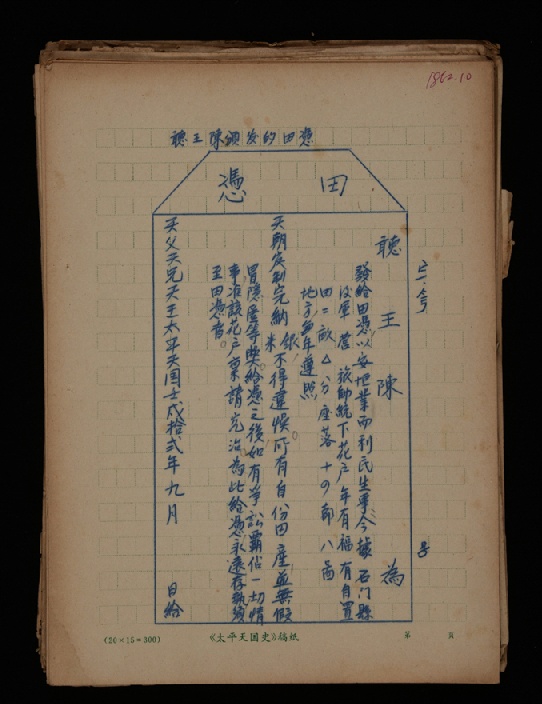 1862.10
聽王陳頒发的田憑
田憑
聽王陳為
發給田憑以安地業而利民生事今據石门縣
後軍營旅帥統下花户年有福有自置
田二畝△分座落十の都八畐
地方每年遵照
天朝定制完納銀米不得違悞所有自份田產並無假
冒隱匿等獘給憑之後如有爭訟霸佔一切情
事准該花户稟請究治為此給憑永遠存執須
至田憑者。
天父天兄天王太平天国壬戌拾弍年九月 日給
号
(20×15=300)
《太平天国史》稿紙
第 頁